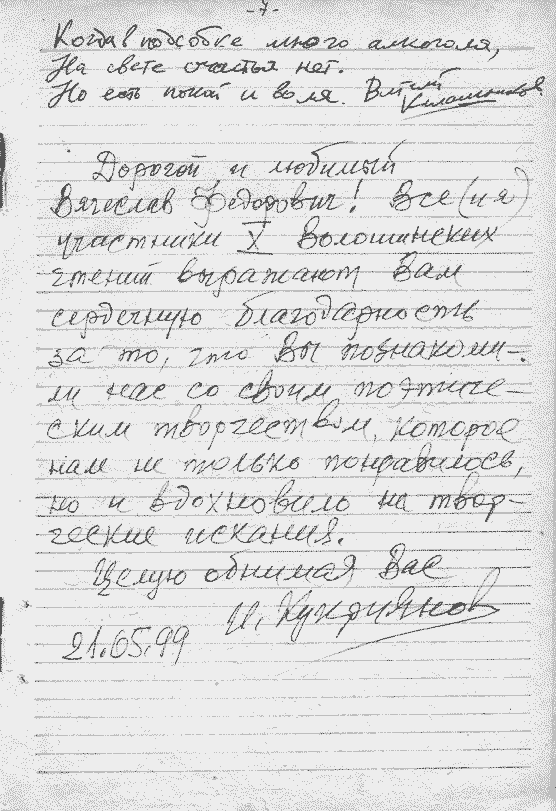 -7-
Когда в подсобке много алкоголя,
На свете счастья нет.
Но есть покой и воля.
Дорогой и любимый
Вячеслав Федорович! Все (и я)
участники X Волошинских
чтений выражают Вам
сердечную благодарность
за то, что Вы познакоми-
ли нас со своим поэтиче-
ским творчеством, которое
нам не только понравилось,
но и вдохновило на твор-
ческие искания.
Целую обнимая Вас
И. Куприянов
21.05.99